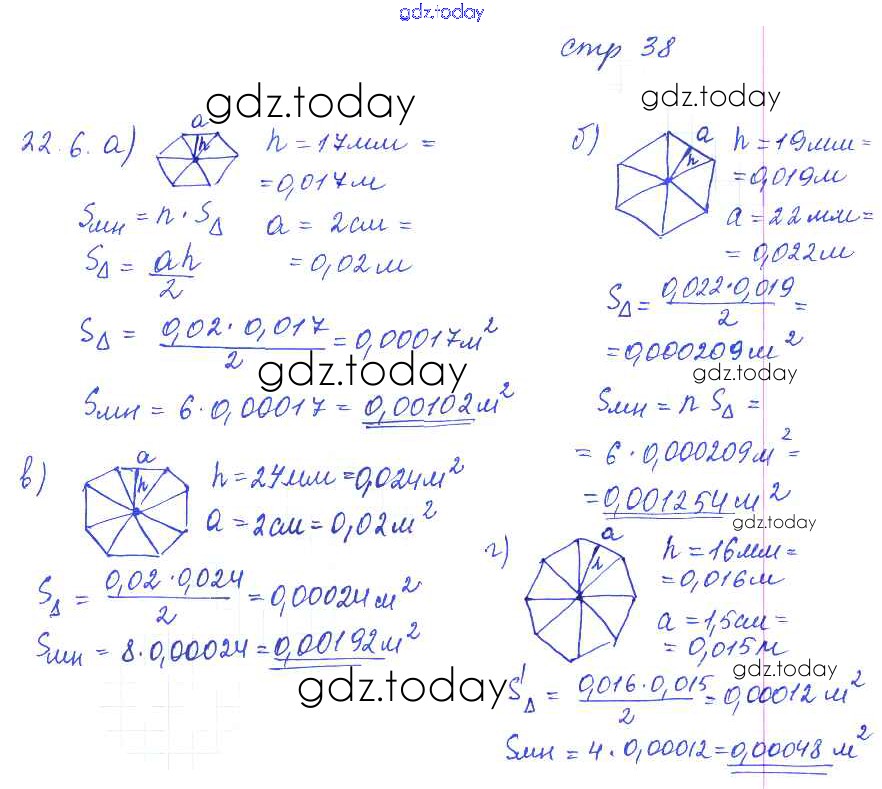 gdz.today
стр 38
gdz.today
gdz.today
22.6. а)
a
h
h = 17мм =
= 0,017м
Sмн = n · S∆
a = 2см =
S∆ = ah/2
= 0,02м
S∆ = 0,02 · 0,017/2 = 0,00017м²
gdz.today
Sмн = 6 · 0,00017 = 0,00102м²
б)
a
h
h = 19мм =
= 0,019м
a = 22мм =
= 0,022м
S∆ = 0,022 · 0,019/2 =
= 0,000209м²
gdz.today
Sмн = n S∆ =
= 6 · 0,000209м² =
= 0,001254м²
gdz.today
в)
a
h
h = 24мм = 0,024м²
a = 2см = 0,02м²
S∆ = 0,02 · 0,024/2 = 0,00024м²
Sмн = 8 · 0,00024 = 0,00192м²
gdz.today
г)
a
h
h = 16мм =
= 0,016м
a = 1,5см =
= 0,015м
gdz.today
S∆ = 0,016 · 0,015/2 = 0,00012м²
Sмн = 4 · 0,00012 = 0,00048м²